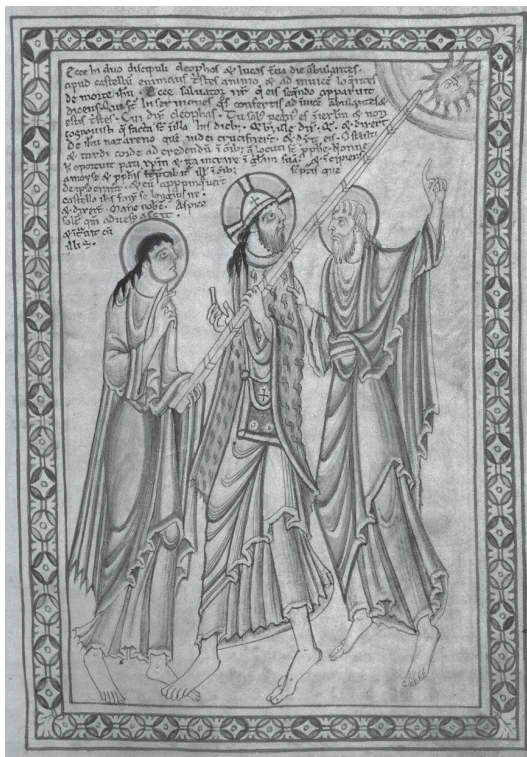 Ecce hi duo discipuli cleophas & lucas t̄cia die ābulantes.
apud castellū emmaus t̄stes animo & ad inuicē loq̄ntes
de morte ihu. Ecce saluator nr̄ eis apparuit
dicens. Qui st̄ hi sermones qͦs confertis ad inuicē ābulantes &
estis t̄stes. Cui dix̄ cleophas. Tu solͥ pegͥnͥ es ī ierlm & non
cognouisti q̄ facta st̄ ī illa his diebͥ. & ille dix̄. Q̄. & dixerͭ
de ihu nazareno quē iudei crucifixerͭ. & dix̄ eis. O stulti
& tardi corde ad credendū ī oībͥ q̄ locuti st̄ pphē. Nonne
sͥ oportuit pati xp̄m & ita intrare ī glām suā. & īcipiens
a moyse & pphis īt̄p̄tabatͬ illͥ ī oībͥ
sc̄ptis que
de ipso erant. & cū appinquarͭ
castello ihs finx̄ se longiͥ ire.
& dixerͭ. Mane nobc̄. Aspice
sole
& īt̄uit cū
illis.